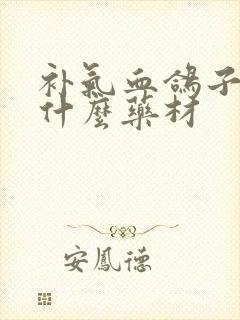 补氣血鴿子
什麼藥材
安鳳德